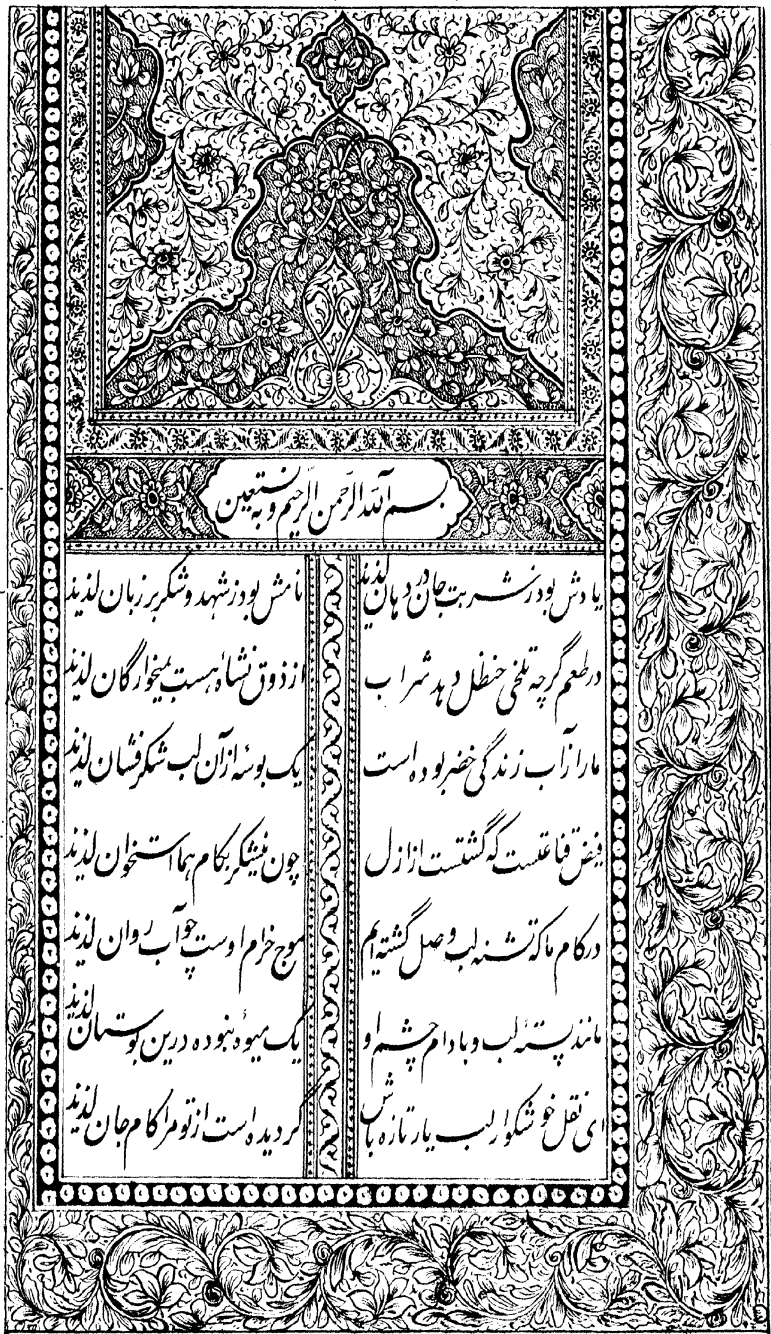 بسم الله الرحمن الرحیم و به نستعین
یادش بود ز شربت جان در دهان لذیذ نامش بود ز شهد و شکر بر زبان لذیذ
در طعم گرچه تلخی حنظل دهد شراب از ذوق نشاهٔ هست بمیخوارگان لذیذ
ما را ز آب زندگی خضر بوده است یک بوسهٔ از آن لب شکرفشان لذیذ
فیض قناعتست که گشتست از ازل چون نیشکر بکام هما استخوان لذیذ
در کام ما که تشنه لب وصل گشته ایم موج خرام اوست چو آب روان لذیذ
مانند پستهٔ لب و بادام چشم او یک میوهٔ نبوده درین بوستان لذیذ
ای نقل خوشگوار لب یار تازه باش گردیده است از تو مرا کام جان لذیذ